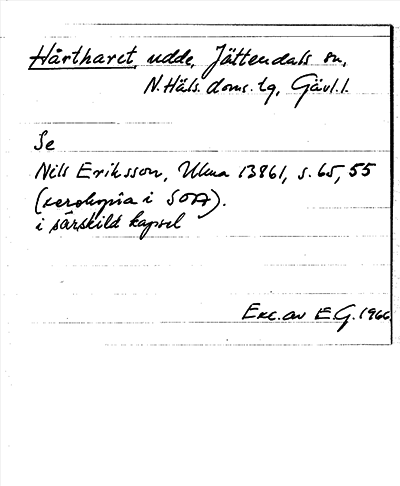 Hårtharet, udde, Jättendals sn,
N. Häls. doms. tg, Gävl. l.
Se
Nils Eriksson, Ulma 13861, s. 65, 55
(xerokopia i SOA).
i särskild kapsel
Exc. av E.G. 1966